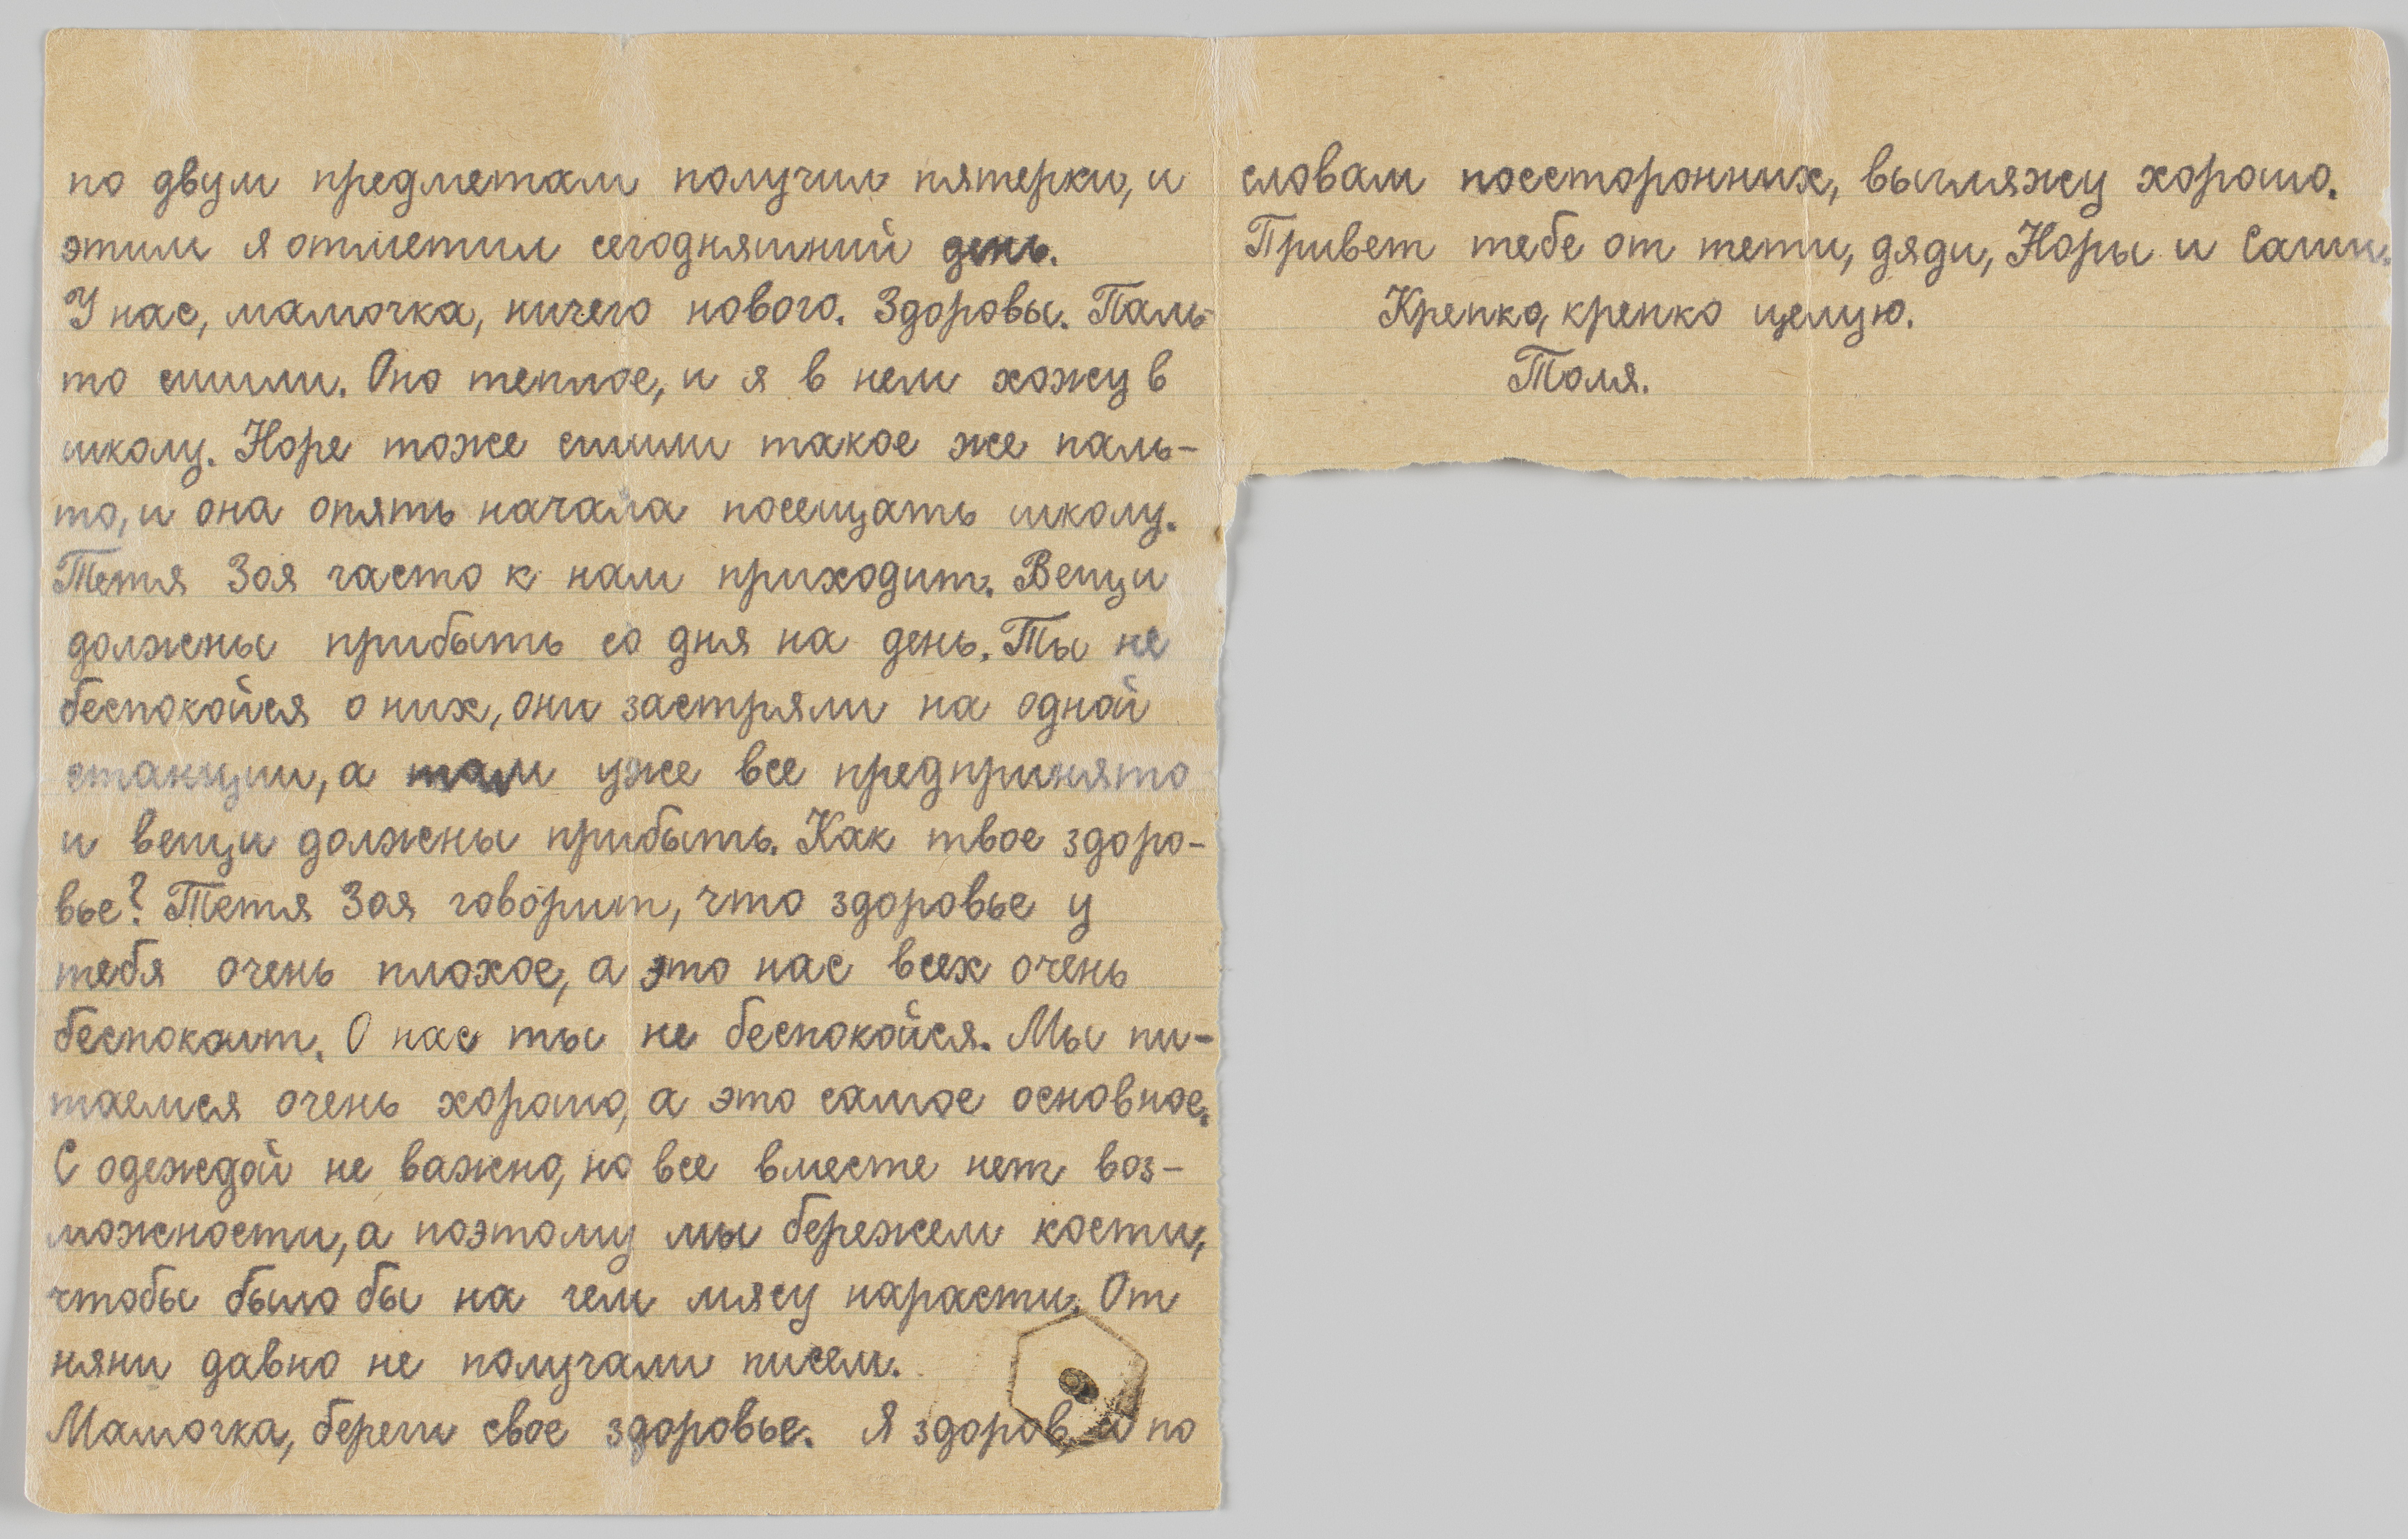 по двум предметам получил пятерки, и
этим я отметил сегодняшний день.
У нас, мамочка, ничего нового. Здоровы. Паль-
то сшили. Оно теплое, и я в нем хожу в
школу. Норе тоже сшили такое же паль-
то, и она опять начала посещать школу.
Тетя Зоя часто к нам приходит. Вещи
должны прибыть со дня на день. Ты не
беспокойся о них, они застряли на одной
станции, а там уже все предпринято
и вещи должны прибыть. Как твое здоро-
вье? Тетя Зоя говорит, что здоровье у
тебя очень плохое, а это нас всех очень
беспокоит. О нас ты не беспокойся. Мы пи-
таемся очень хорошо, а это самое основное.
С одеждой не важно, но все вместе нет воз-
можности, а поэтому мы бережем кости,
чтобы было бы на чем мясу нарасти. От
няни давно не получали писем.
Мамочка, береги свое здоровье. Я здоров, и по
словам посторонних, выгляжу хорошо.
Привет тебе от тети, дяди, Норы и Саши.
Крепко, крепко целую.
Толя.